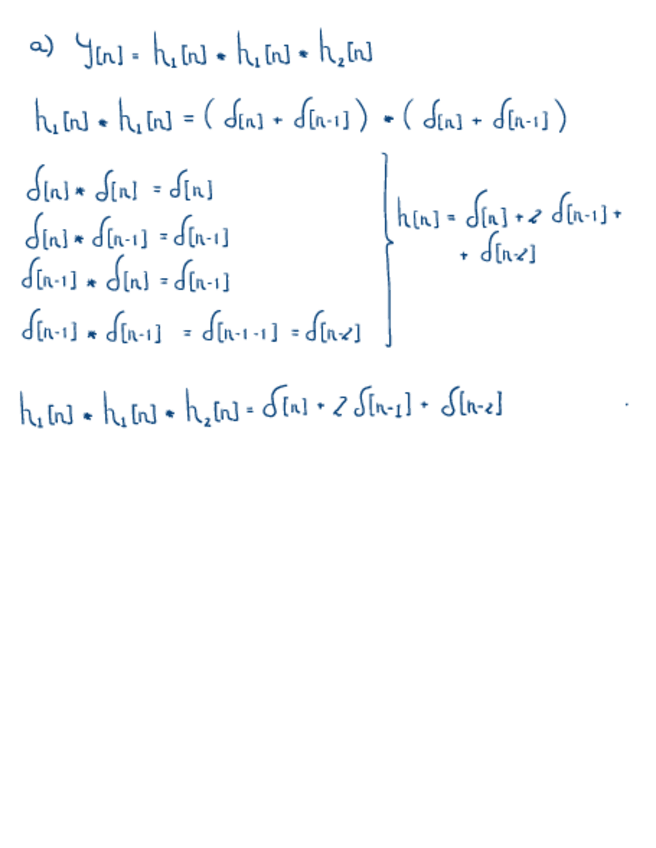 a) y[n] = h₁[n] * h₁[n] * h₂[n]
h₁[n] * h₁[n] = ( δ[n] + δ[n-1] ) * ( δ[n] + δ[n-1] )
δ[n] * δ[n] = δ[n]
δ[n] * δ[n-1] = δ[n-1]
δ[n-1] * δ[n] = δ[n-1]
δ[n-1] * δ[n-1] = δ[n-1-1] = δ[n-2]
h[n] = δ[n] + 2 δ[n-1] +
+ δ[n-2]
h₁[n] * h₁[n] * h₂[n] = δ[n] + 2 δ[n-1] + δ[n-2]